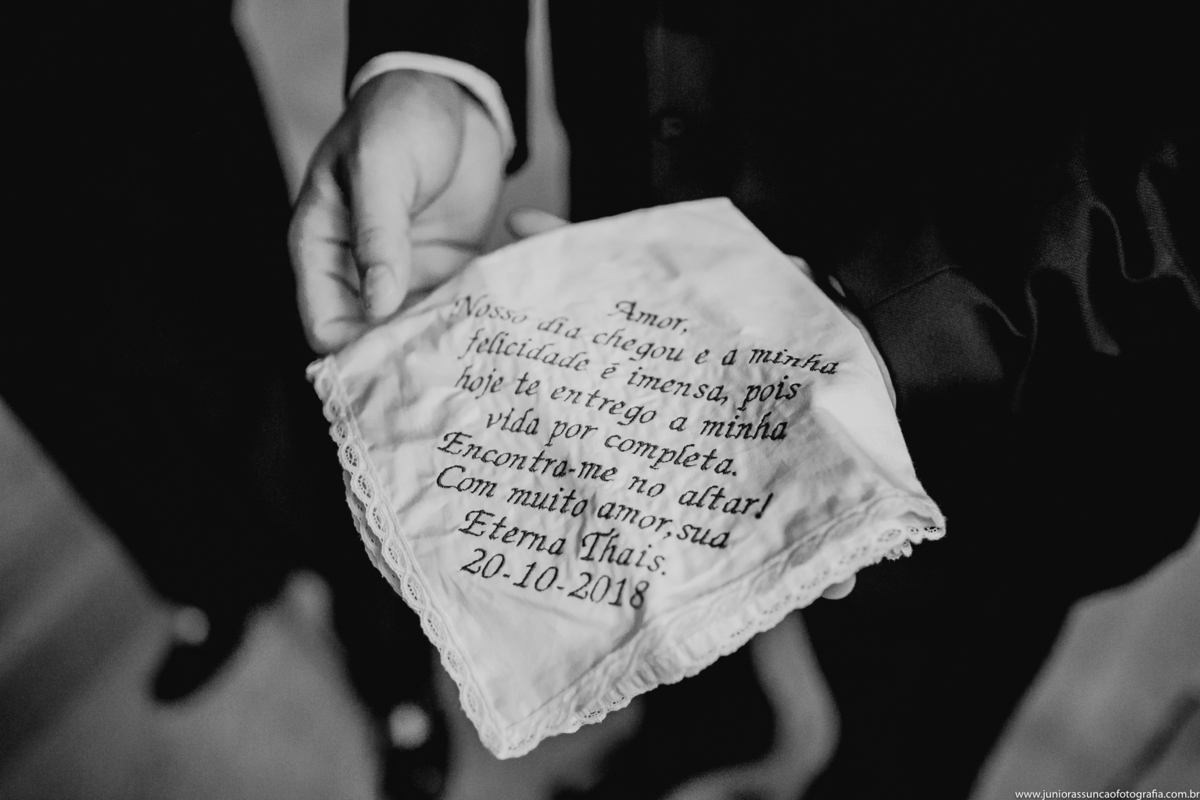 Amor,
Nosso dia chegou e a minha
felicidade é imensa, pois
hoje te entrego a minha
vida por completa.
Encontra-me no altar!
Com muito amor,sua
Eterna Thais.
20-10-2018
www.juniorassuncaofotografia.com.br